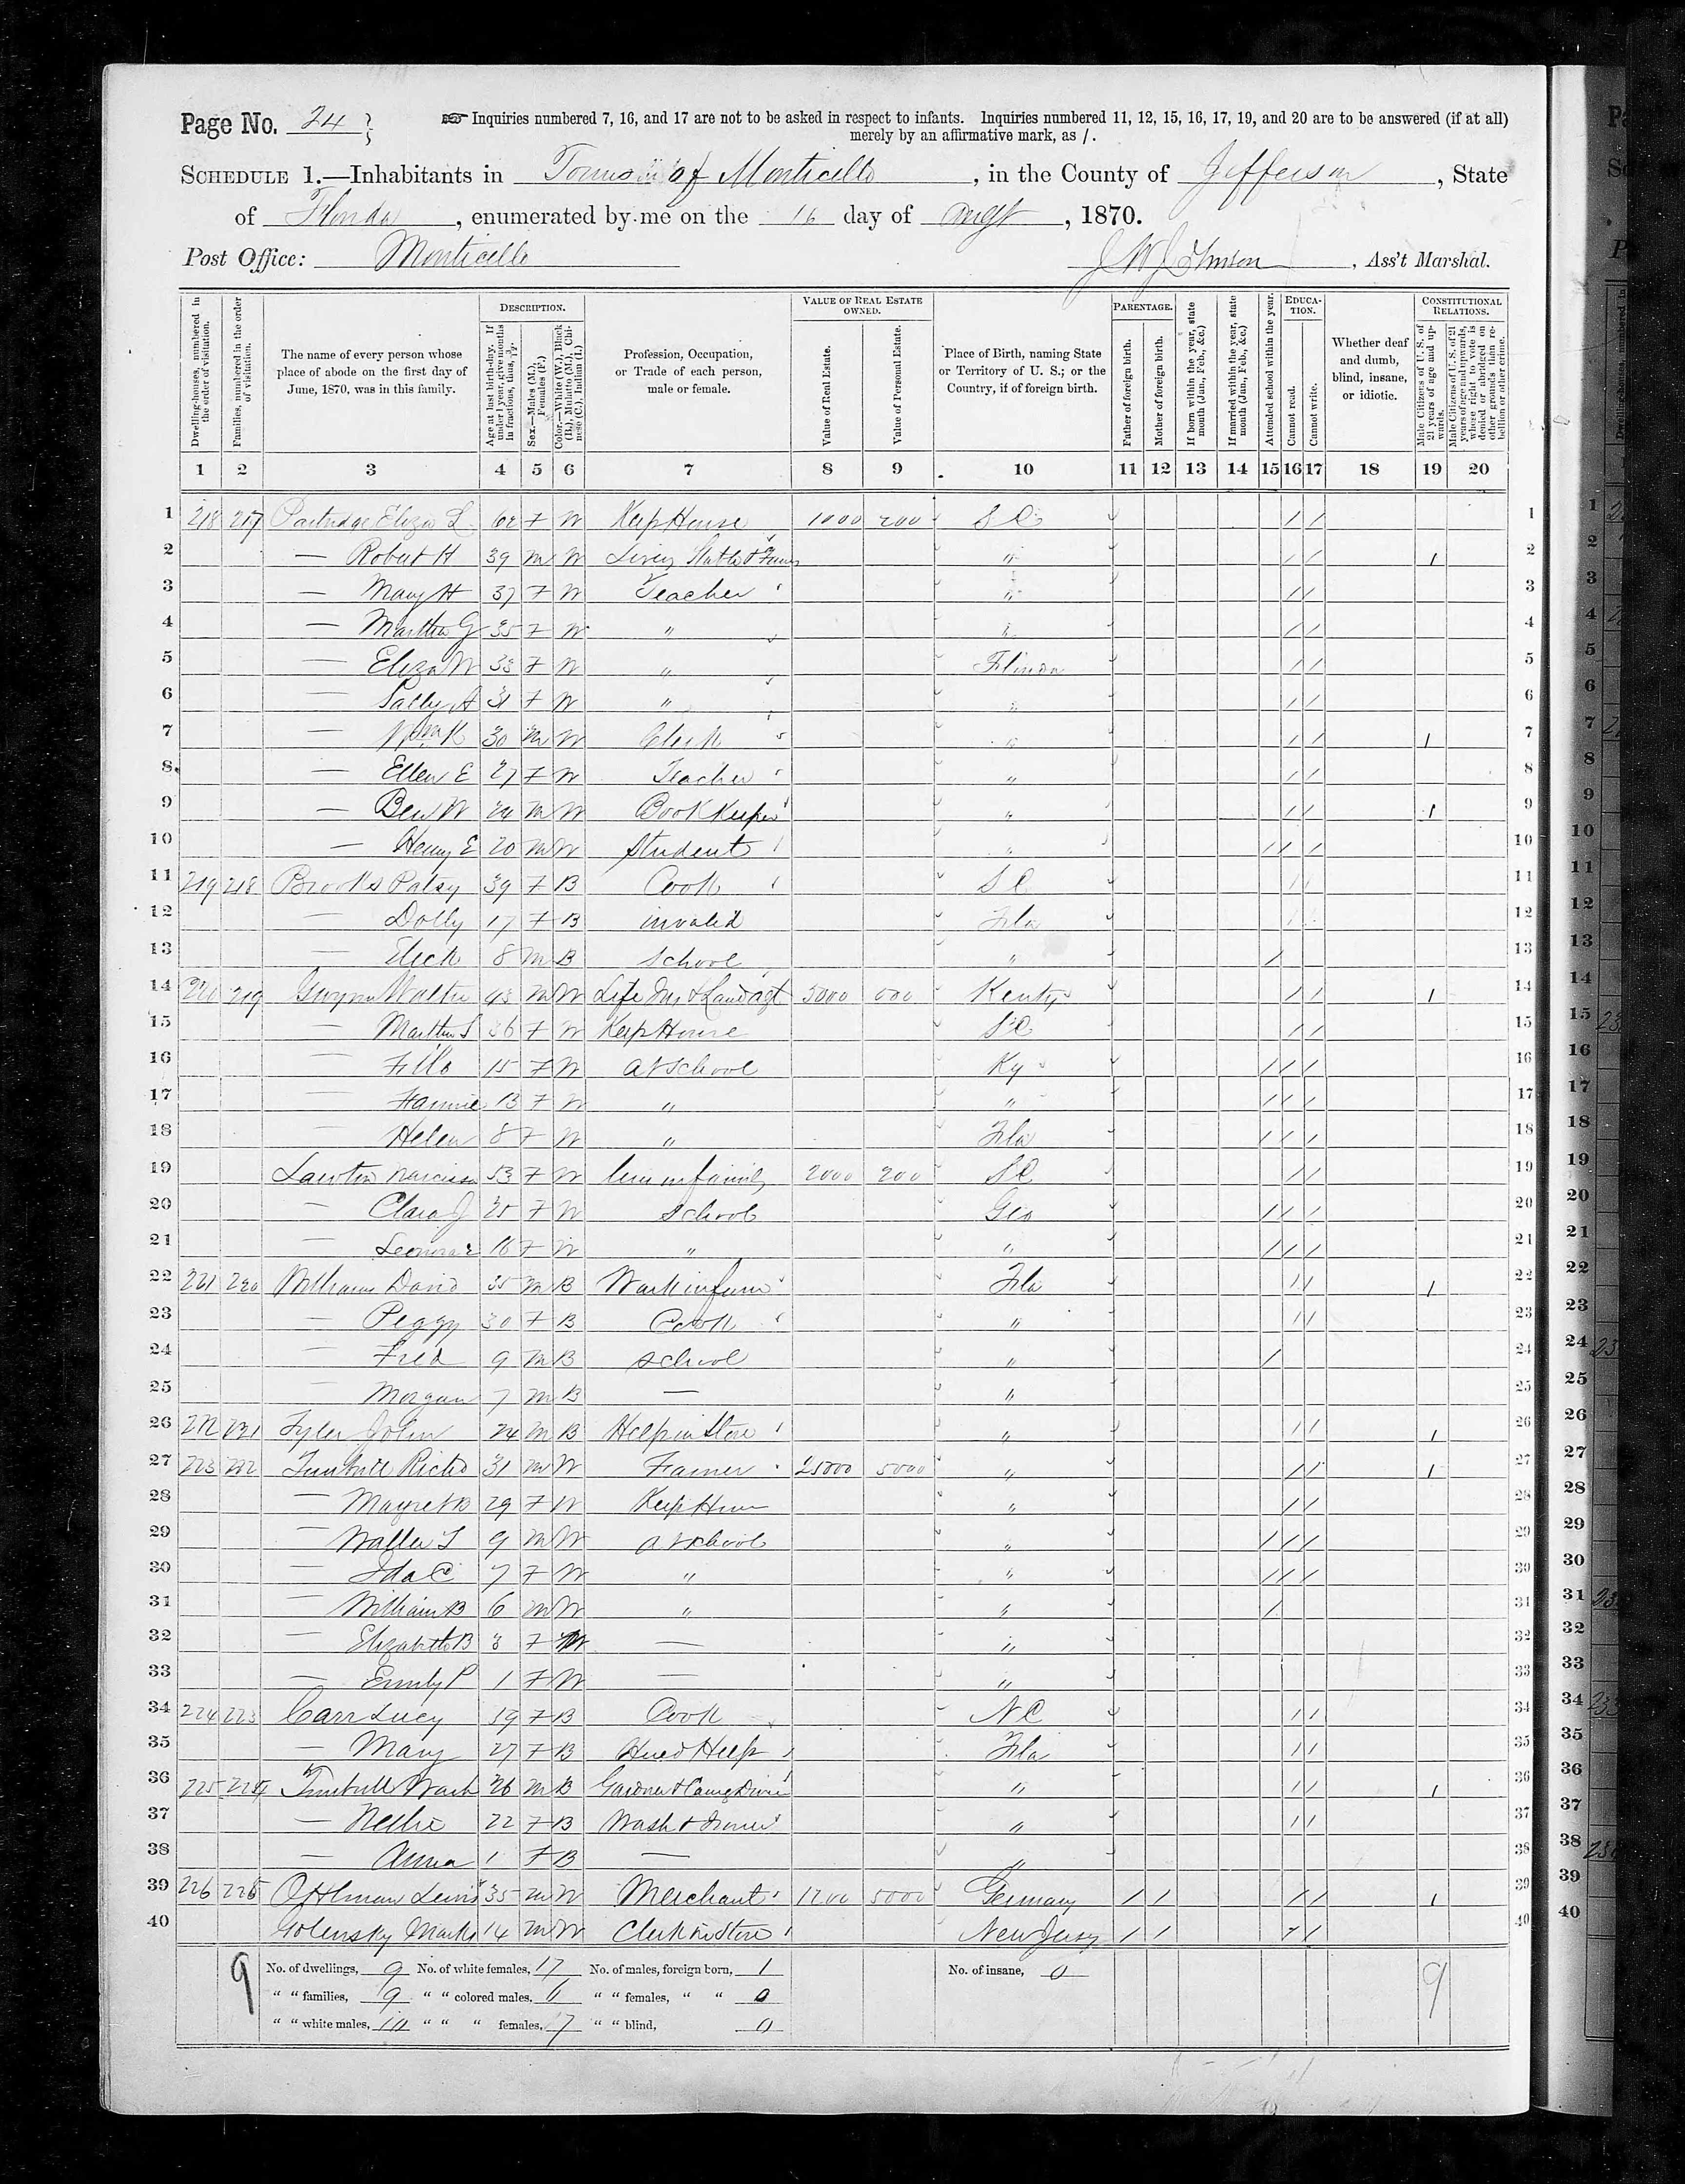 Page No. 24
☞ Inquiries numbered 7, 16, and 17 are not to be asked in respect to infants. Inquiries numbered 11, 12, 15, 16, 17, 19, and 20 are to be answered (if at all)
merely by an affirmative mark, as /.
SCHEDULE 1.—Inhabitants in Town of Monticello, in the County of Jefferson, State
of Florida, enumerated by me on the 16 day of Augt, 1870.
Post Office: Monticello J W Johnson, Ass't Marshal.
Dwelling-houses, numbered in the order of visitation.
Families, numbered in the order of visitation.
The name of every person whose place of abode on the first day of June, 1870, was in this family.
DESCRIPTION.
Age at last birth-day. If under 1 year, give months in fractions, thus, 3/12.
Sex.—Males (M.), Females (F.)
Color.—White (W.), Black (B.), Mulatto (M.), Chinese (C.), Indian (I.)
Profession, Occupation, or Trade of each person, male or female.
VALUE OF REAL ESTATE OWNED.
Value of Real Estate.
Value of Personal Estate.
Place of Birth, naming State or Territory of U. S.; or the Country, if of foreign birth.
PARENTAGE.
Father of foreign birth.
Mother of foreign birth.
If born within the year, state month (Jan., Feb., &c.)
If married within the year, state month (Jan., Feb., &c.)
Attended school within the year.
EDUCATION.
Cannot read.
Cannot write.
Whether deaf and dumb, blind, insane, or idiotic.
CONSTITUTIONAL RELATIONS.
Male Citizens of U. S. of 21 years of age and upwards.
Male Citizens of U. S. of 21 years of age and upwards, whose right to vote is denied or abridged on other grounds than rebellion or other crime.
1 2 3 4 5 6 7 8 9 10 11 12 13 14 15 16 17 18 19 20
1 218 217 Partridge Eliza L 62 F W Keep House 1000 200 S C / / 1
2 — Robert H 39 M W Livery Stable & Farm " / / / 2
3 — Mary H 37 F W Teacher " / / 3
4 — Martha G 35 F W " " / / 4
5 — Eliza W 33 F W " Florida / / 5
6 — Sally A 31 F W " " / / 6
7 — Wm K 30 M W Clerk " / / / 7
8 — Ellen E 27 F W Teacher " / / 8
9 — Ben W 24 M W Book Keeper " / / / 9
10 — Henry E 20 M W Student " / / / 10
11 219 218 Brooks Patsy 39 F B Cook S C / / 11
12 — Dolly 17 F B invalid Fla / / 12
13 — Eleck 8 M B School " / 13
14 220 219 Gwynn Walter 45 M W Life Ins & Land agt 3000 Kenty / / / 14
15 — Martha S 36 F W Keep House S C / / 15
16 — 15 F W at School Ky / / / 16
17 — Fannie 13 F W " " / / / 17
18 — Helen 8 F W " Fla / / / 18
19 Lawton Narcissa 53 F W live in family 2000 200 S C / / 19
20 — Clara J 25 F W School Geo / / / 20
21 — Leonora E 16 F W " " / / / 21
22 221 220 Williams David 35 M B Work in farm Fla / / / 22
23 — Peggy 30 F B Cook " / / 23
24 — Fred 9 M B School " / 24
25 — Morgan 7 M B — " 25
26 222 221 Tyler John 24 M B Help in Store " / / / 26
27 223 222 Turnbull Richd 31 M W Farmer 25000 5000 " / / / 27
28 — 29 F W Keep House " / / 28
29 — Walter T 9 M W at School " / / / 29
30 — Ida C 7 F W " " / / / 30
31 — William B 6 M W " " / 31
32 — Elizabeth B 3 F W — " 32
33 — Emily P 1 F W — " 33
34 224 223 Carr Lucy 19 F B Cook N C / / 34
35 — Mary 27 F B Hired Help Fla / / 35
36 225 224 Turnbull Wash 26 M B Gardner & Carrg Driver " / / / 36
37 — Nellie 22 F B Wash & Ironer " / / 37
38 — Anna 1 F B — " 38
39 226 225 Lewis 35 M W Merchant 1200 5000 Germany / / / / / 39
40 Golensky Marks 14 M W Clerk in Store New Jersy / / / / 40
9 No. of dwellings, 9 No. of white females, 17 No. of males, foreign born, 1 No. of insane, 0 9
" " families, 9 " " colored males, 6 " " females, " " 0
" " white males, 10 " " " females, 7 " " blind, 0